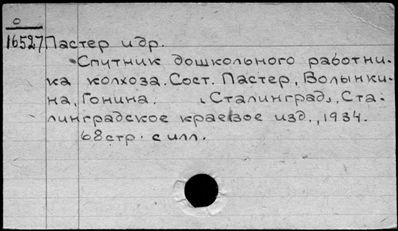 0
16527 Пастер и др.
Спутник дошкольного работни-
ка колхоза. Сост. Пастер, Волынки-
на, Гонина. „Сталинград", Ста-
линградское краевое изд., 1934.
68 стр. с илл.